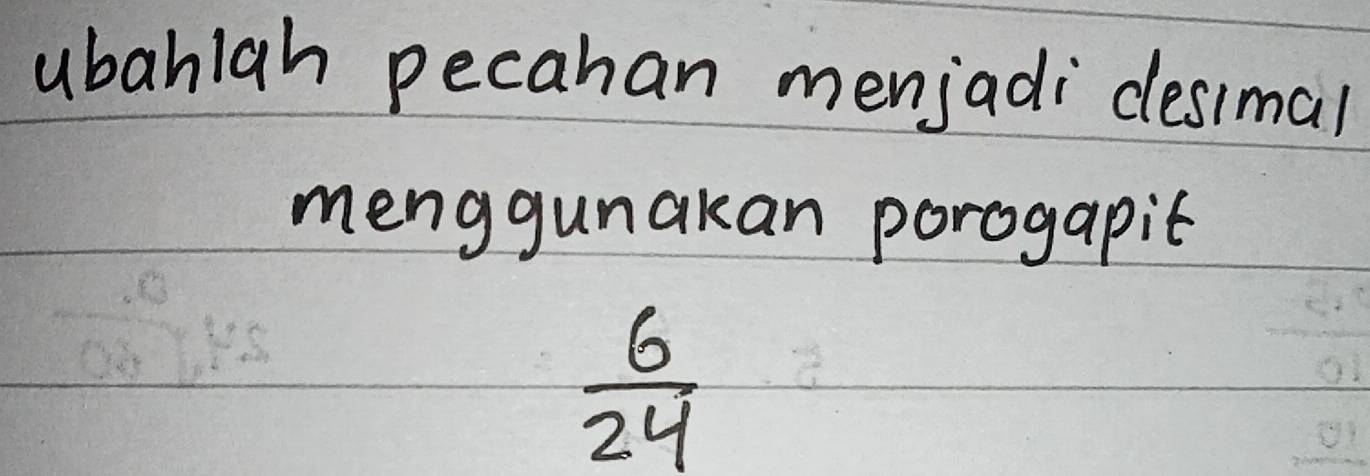 ubahlah pecahan menjadi desimal
menggunakan porogapit
6
24